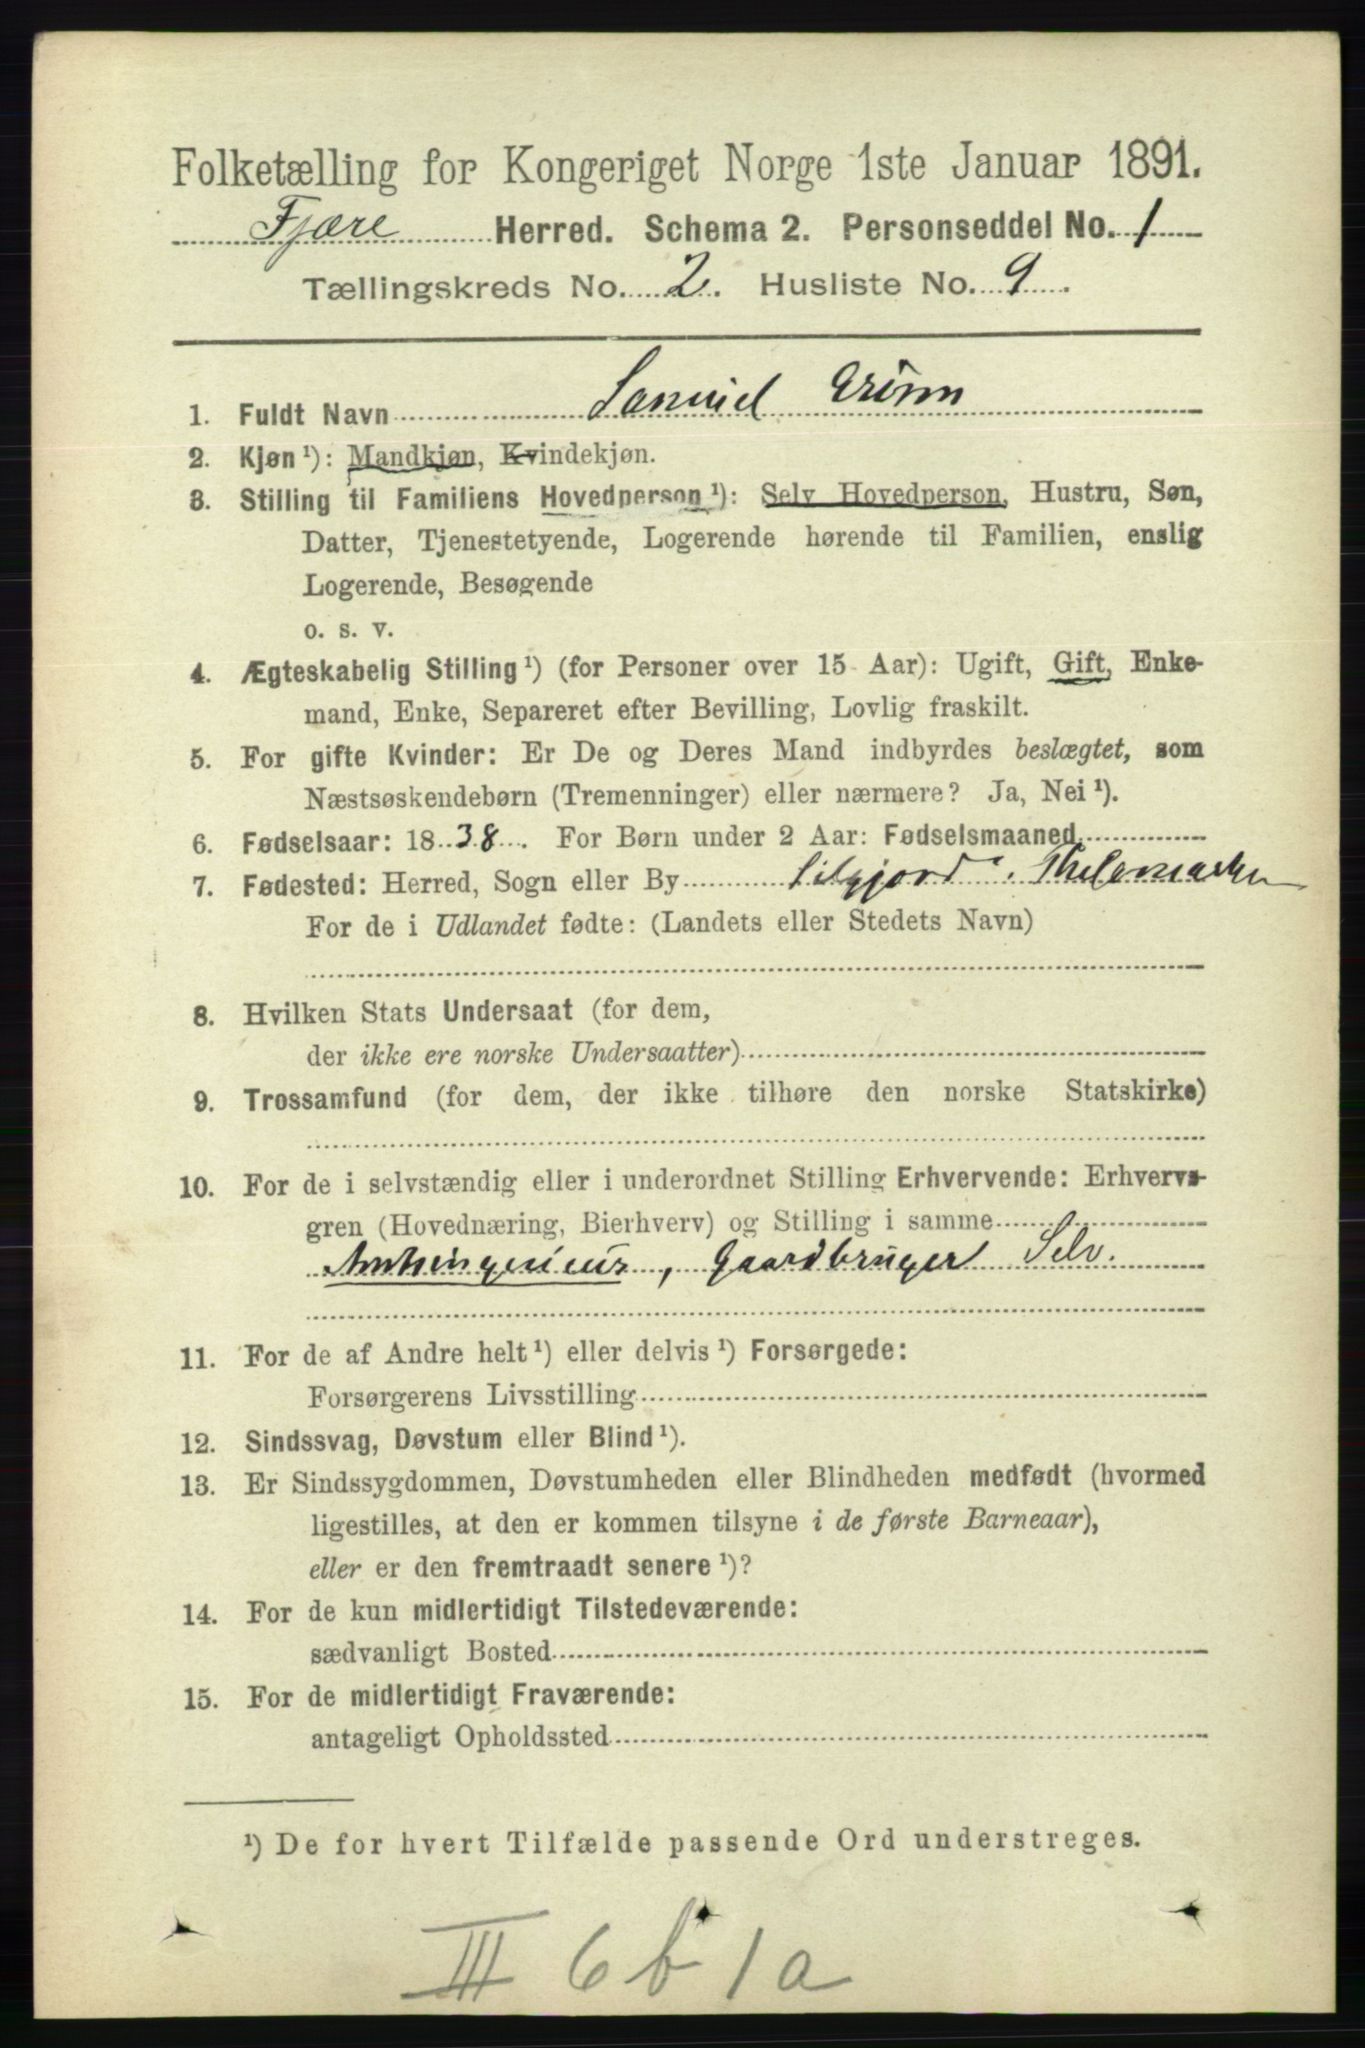 Folketælling for Kongeriget Norge 1ste Januar 1891.
Fjære Herred. Schema 2. Personseddel No. 1
Tællingskreds No. 2. Husliste No. 9.
1. Fuldt Navn Samuel
2. Kjøn ¹): Mandkjøn, Kvindekjøn.
3. Stilling til Familiens Hovedperson ¹): Selv Hovedperson, Hustru, Søn,
Datter, Tjenestetyende, Logerende hørende til Familien, enslig
Logerende, Besøgende
o. s. v.
4. Ægteskabelig Stilling ¹) (for Personer over 15 Aar): Ugift, Gift, Enke-
mand, Enke, Separeret efter Bevilling, Lovlig fraskilt.
5. For gifte Kvinder: Er De og Deres Mand indbyrdes beslægtet, som
Næstsøskendebørn (Tremenninger) eller nærmere? Ja, Nei ¹).
6. Fødselsaar: 1838. For Børn under 2 Aar: Fødselsmaaned
7. Fødested: Herred, Sogn eller By Silgjord i Thelemarken
For de i Udlandet fødte: (Landets eller Stedets Navn)
8. Hvilken Stats Undersaat (for dem,
der ikke ere norske Undersaatter)
9. Trossamfund (for dem, der ikke tilhøre den norske Statskirke)
10. For de i selvstændig eller i underordnet Stilling Erhvervende: Erhvervs-
gren (Hovednæring, Bierhverv) og Stilling i samme
Amtsingenieur, Gaardbruger Selv.
11. For de af Andre helt ¹) eller delvis ¹) Forsørgede:
Forsørgerens Livsstilling
12. Sindssvag, Døvstum eller Blind ¹).
13. Er Sindssygdommen, Døvstumheden eller Blindheden medfødt (hvormed
ligestilles, at den er kommen tilsyne i de første Barneaar),
eller er den fremtraadt senere ¹)?
14. For de kun midlertidigt Tilstedeværende:
sædvanligt Bosted
15. For de midlertidigt Fraværende:
antageligt Opholdssted
¹) De for hvert Tilfælde passende Ord understreges.
III 6 b 1 a